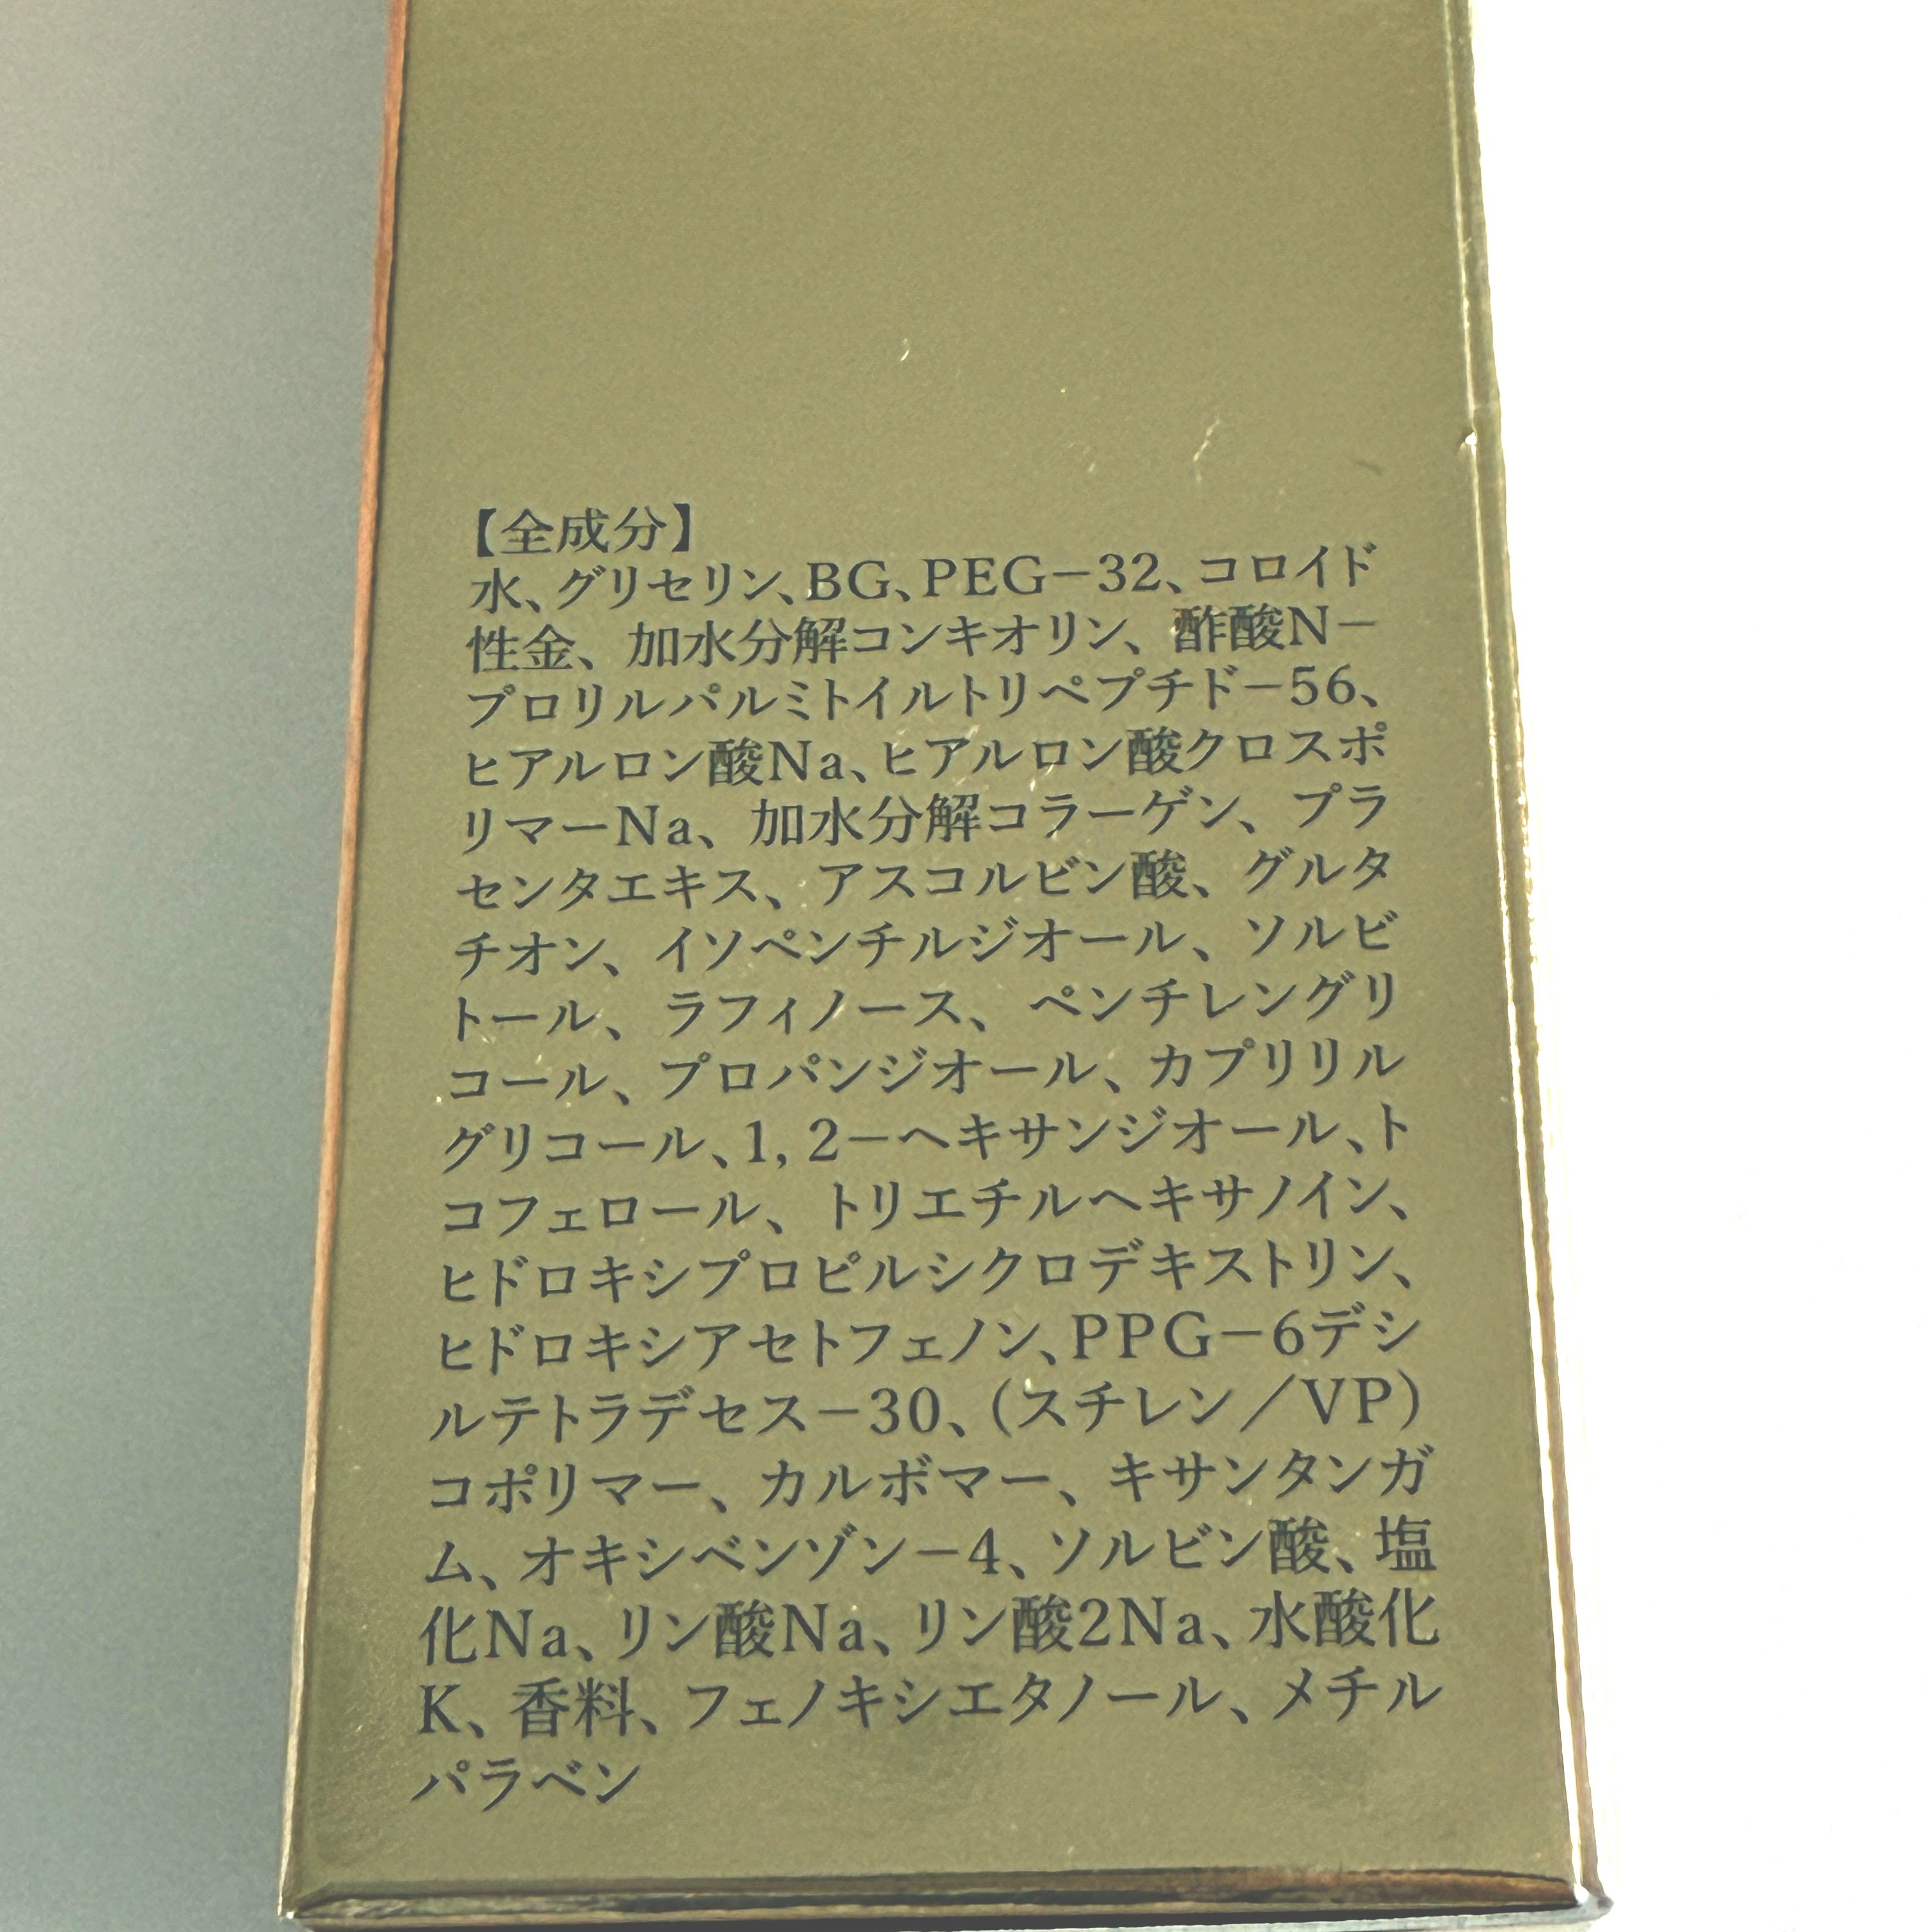 【全成分】
水、グリセリン、BG、PEG−32、コロイド
性金、加水分解コンキオリン、酢酸N−
プロリルパルミトイルトリペプチド−56、
ヒアルロン酸Na、ヒアルロン酸クロスポ
リマーNa、加水分解コラーゲン、プラ
センタエキス、アスコルビン酸、グルタ
チオン、イソペンチルジオール、ソルビ
トール、ラフィノース、ペンチレングリ
コール、プロパンジオール、カプリリル
グリコール、1,2−ヘキサンジオール、ト
コフェロール、トリエチルヘキサノイン、
ヒドロキシプロピルシクロデキストリン、
ヒドロキシアセトフェノン、PPG−6デシ
ルテトラデセス−30、（スチレン／VP）
コポリマー、カルボマー、キサンタンガ
ム、オキシベンゾン−4、ソルビン酸、塩
化Na、リン酸Na、リン酸2Na、水酸化
K、香料、フェノキシエタノール、メチル
パラベン